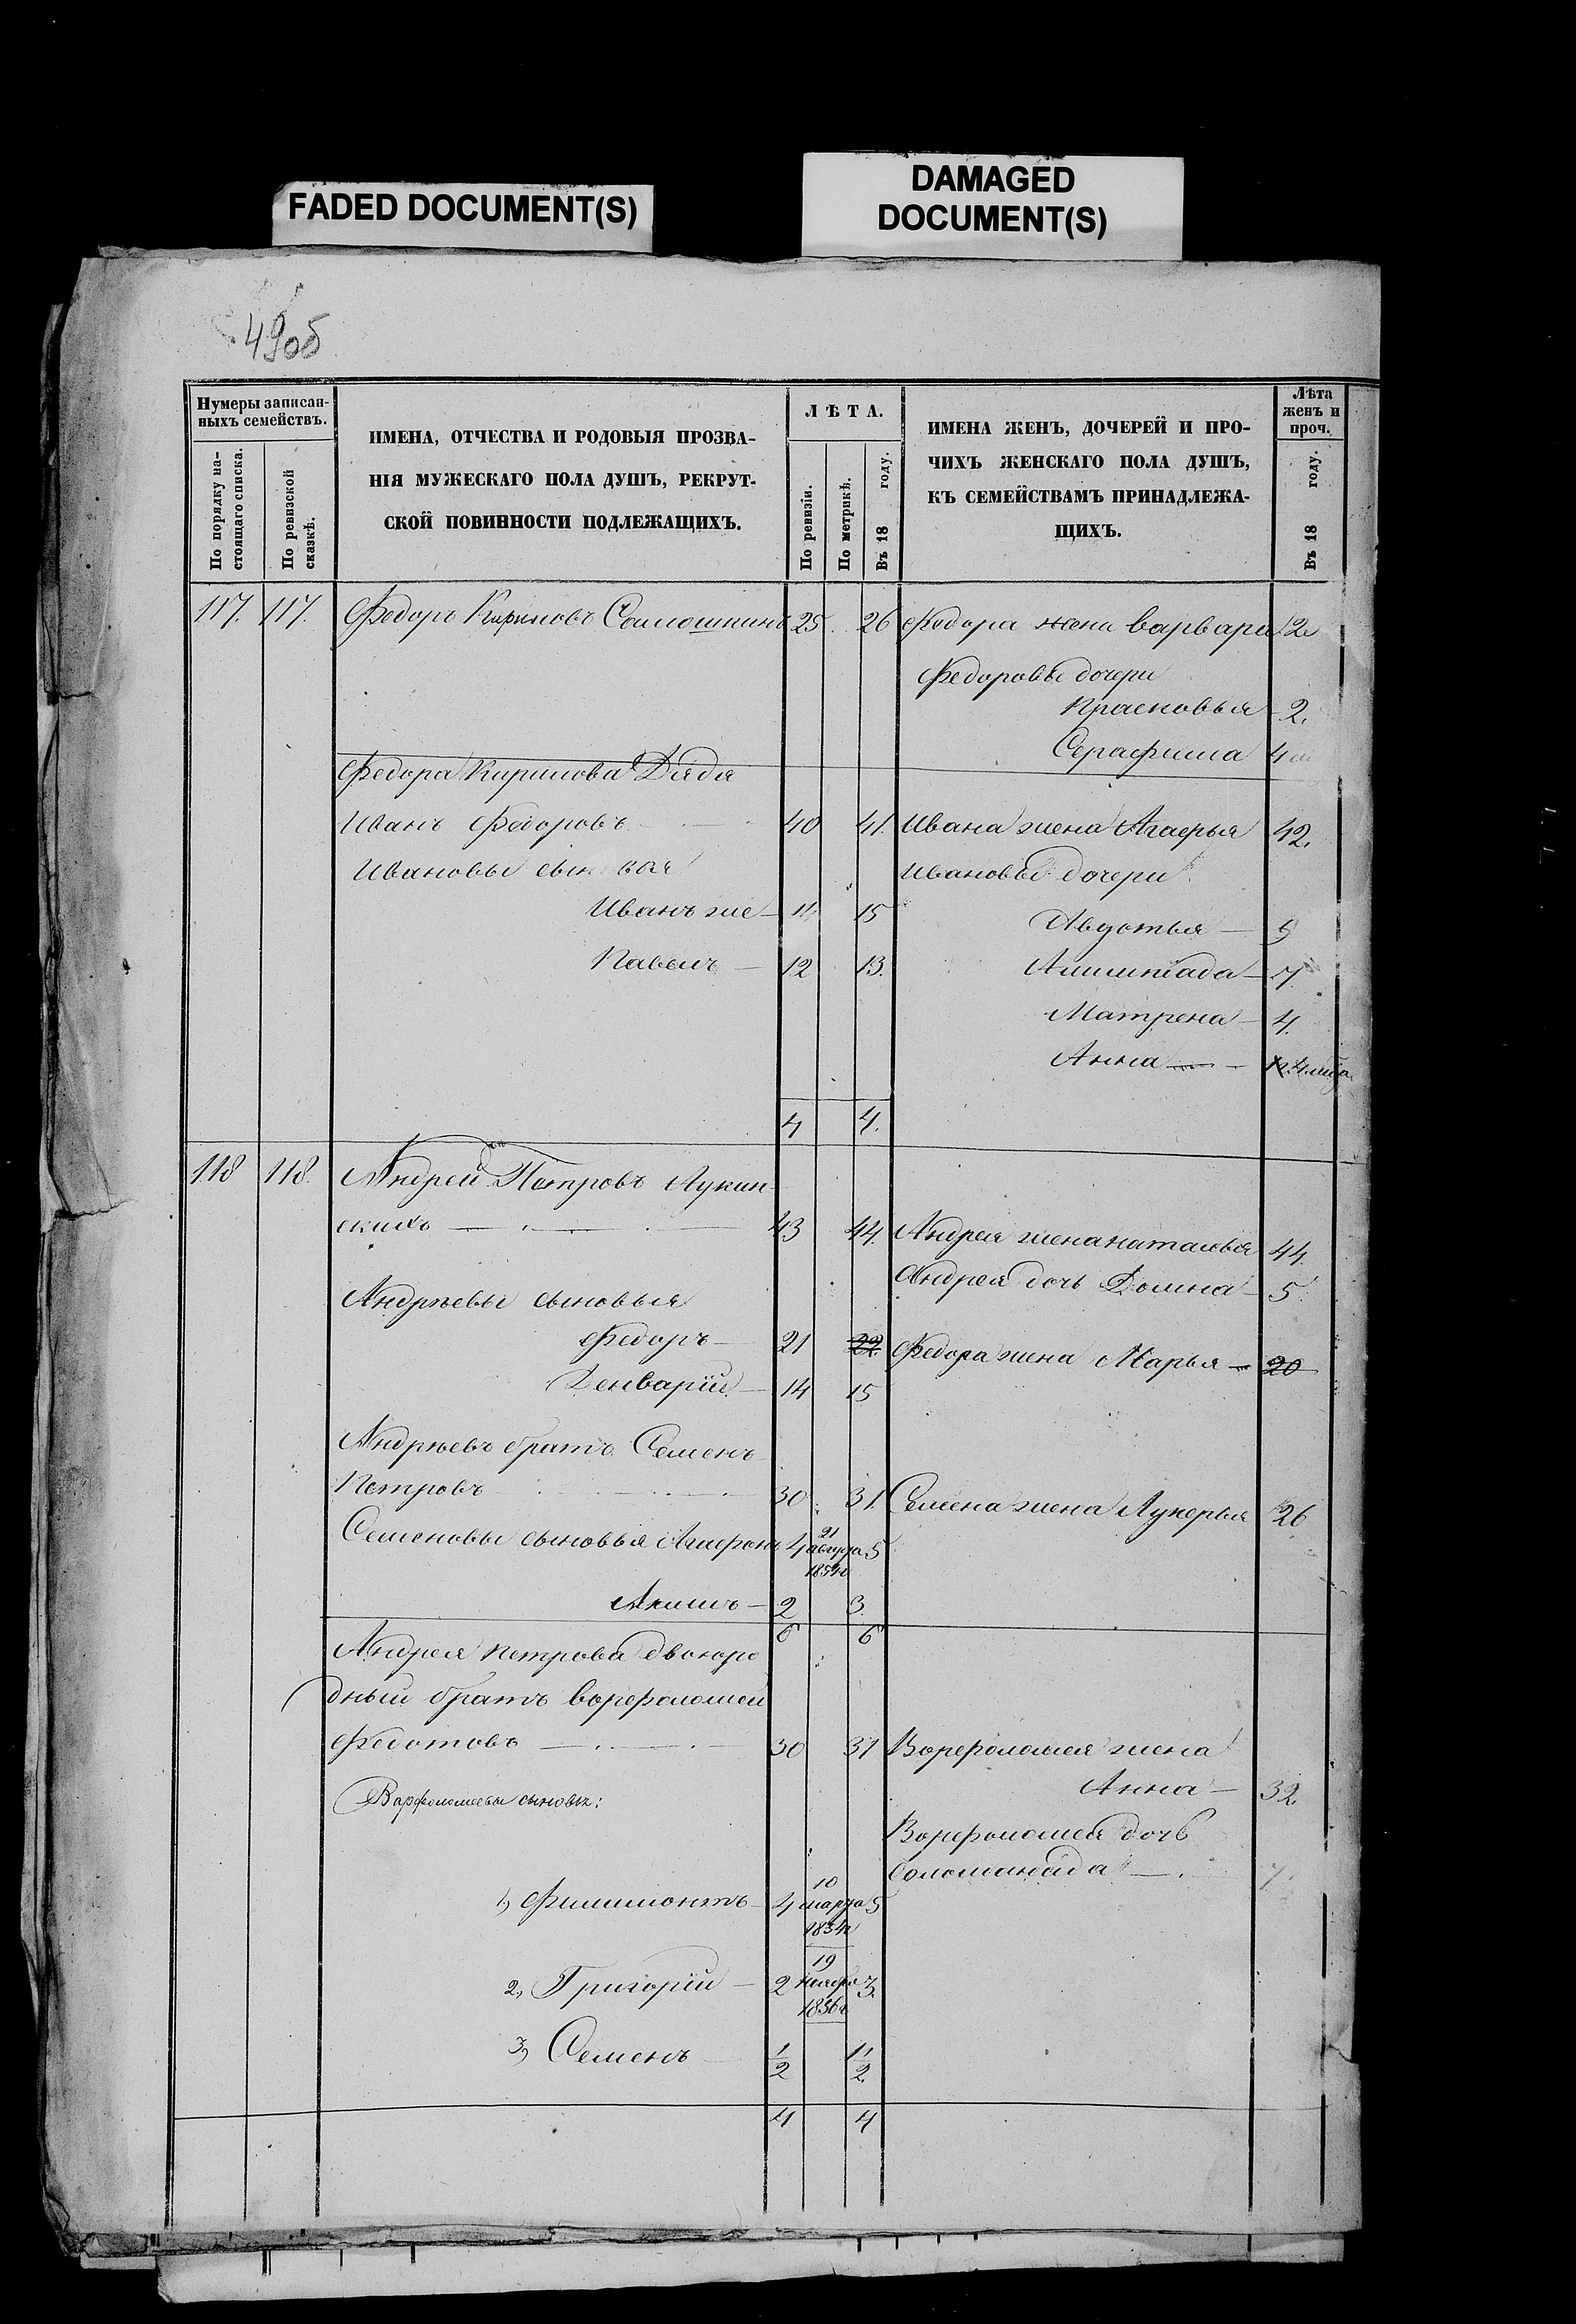 FADED DOCUMENT(S)
DAMAGED
DOCUMENT(S)
49об
Нумеры записан-
ныхъ семействъ.
По порядку на-
стоящаго списка.
По ревизской
сказкѣ.
ИМЕНА, ОТЧЕСТВА И РОДОВЫЯ ПРОЗВА-
НІЯ МУЖЕСКАГО ПОЛА ДУШЪ, РЕКРУТ-
СКОЙ ПОВИННОСТИ ПОДЛЕЖАЩИХЪ.
ЛѢТА.
По ревизіи.
По метрикѣ.
Въ 18 году.
ИМЕНА ЖЕНЪ, ДОЧЕРЕЙ И ПРО-
ЧИХЪ ЖЕНСКАГО ПОЛА ДУШЪ,
КЪ СЕМЕЙСТВАМЪ ПРИНАДЛЕЖА-
ЩИХЪ.
Лѣта
женъ и
проч.
Въ 18 году.
117. 117. Федоръ Кириловъ 25. 26 Федора жена варвара
Федоровы дочери
Прасковья 2.
Серафима 4
Федора Кирилова Дядя
Иванъ Федоровъ 40 41. Ивана жена Агафья 42.
Ивановы сыновья Ивановы дочери
Иванъ же 14 15 Авдотья
Павелъ 12 13. 7.
Матрена 4.
Анна
4 4.
118 118. Андрей Петровъ Лукин
скихъ 43 44. Андрея жена наталья 44.
Андрея дочь Домна 5.
Андрѣевы сыновья
Федоръ 21 22. Федора жена Марья 20
Генварій 14 15
Андрѣевъ братъ Семенъ
Петровъ 30 31. Семена жена Лукерья 26
Семеновы сыновья Агафонъ 4 21 августа 1854 5
Акимъ 2 3
6 6
Андрея петрова двоюро
дный братъ ворфоломей
Федотовъ 30 31 Ворфоломея жена
Анна 32.
Варфоломеевы сыновья:
Ворфоломея дочь
7.
1) Филимонтъ 4 10 марта 1854 5
2) Григорій 2 19 1856 3.
3) Семенъ 1/2 1 1/2.
4 4